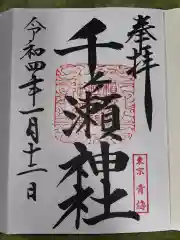 奉拝
千ヶ瀬神社
令和四年一月十二日
東京 青梅